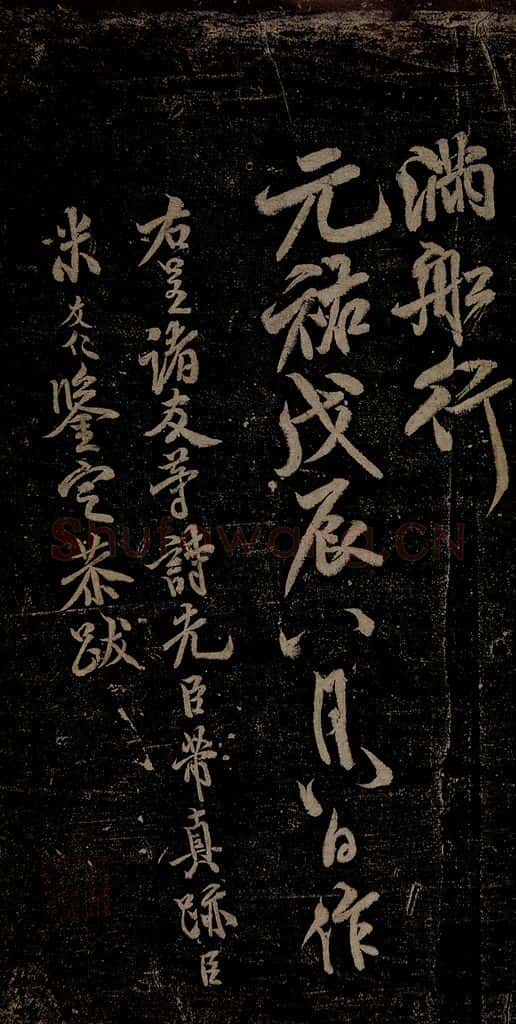 满船行
元祐戊辰八月八日作
右呈诸友等詩先臣芾真跡臣
米友仁鑒定恭跋
Shufawang.CN